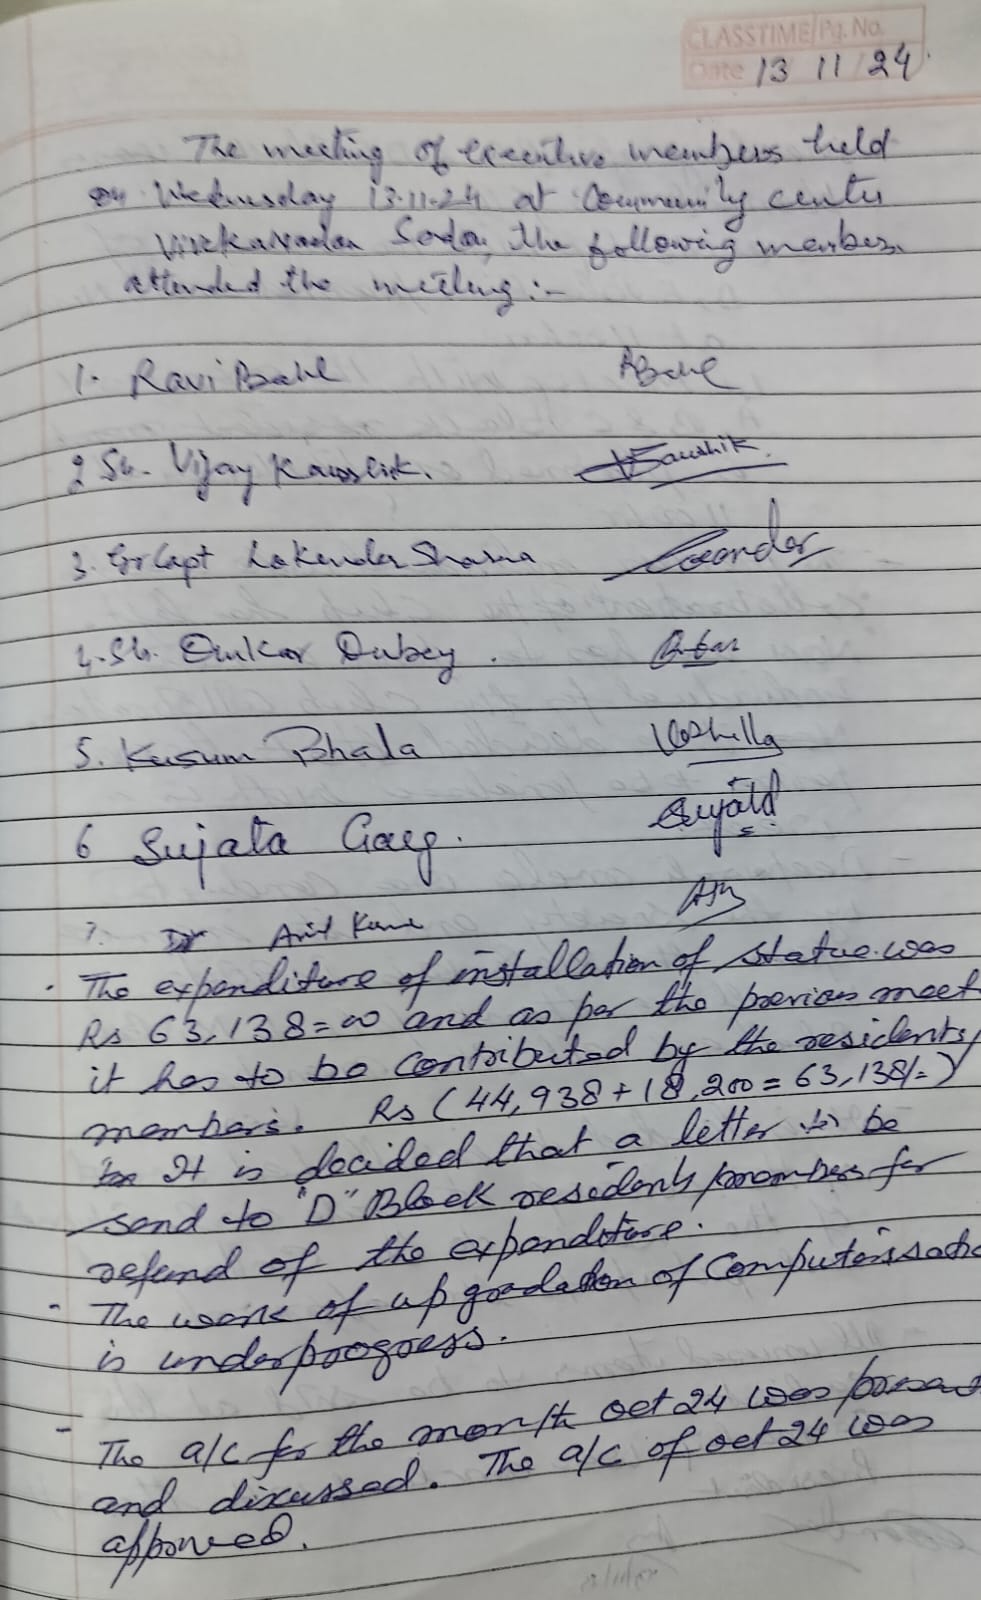 CLASSTIME/Pg. No.
Date 13 11/24
The meeting of executive members held
on Wednesday 13-11-24 at Community center
Vivekanandan Sadan, the following members
attended the meeting:-
1. Ravi Bahl
2 Sh. Vijay Kaushik. Kaushik
3. Gr Capt Lokender Sharma
4. Sh. Omkar Dubey.
5. Kusum Bhala
6 Sujata Garg. Sujata
7. Dr Anil Kumar
. The expenditure of installation of statue was
Rs 63,138=00 and as per the previous meet
it has to be contributed by the residents/
members. Rs (44,938+18,200=63,138/=)
It is decided that a letter to be
send to "D" Block residents/members for
refund of the expenditure.
- The work of up gradation of Computerisatio
is underprogress.
- The a/c for the month oct 24 was present
and discussed. The a/c of oct 24 was
approved.